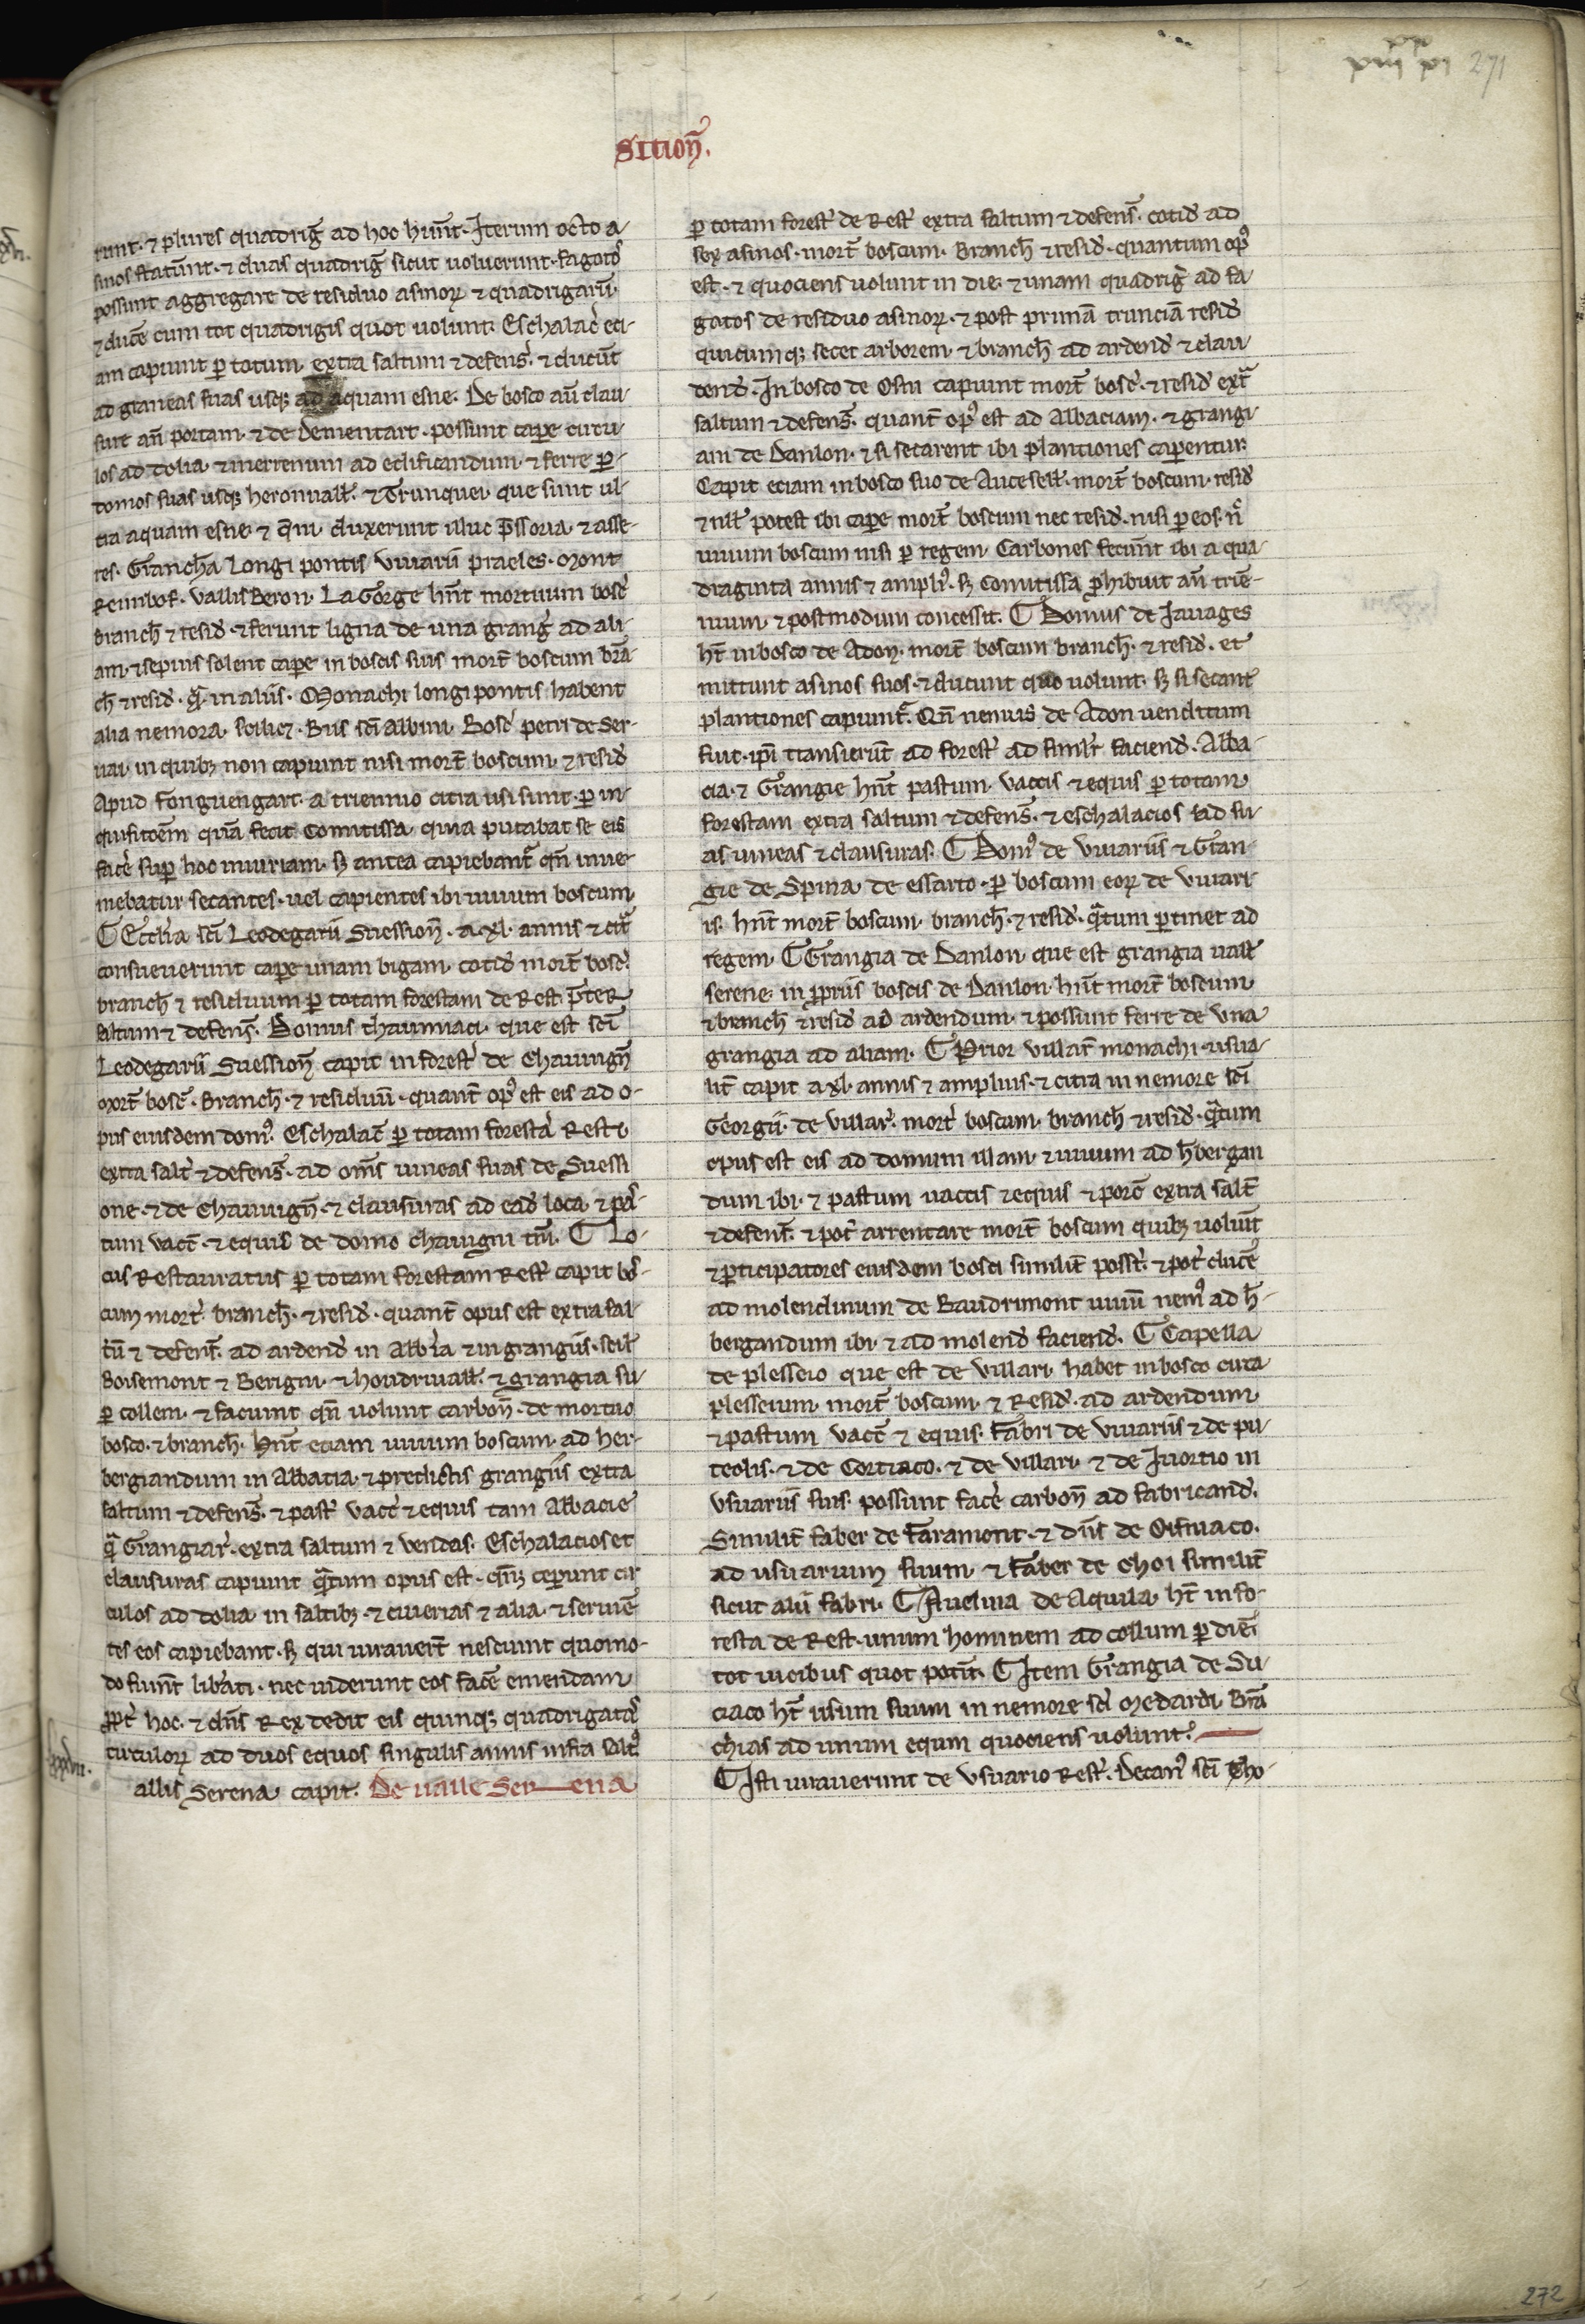 271
sition̄.
runt. ⁊ plures quadrig̃ ad hoc hn̄t. Iterum octo a-
sinos statūnt. ⁊ duas quadrig̃ sicut uoluerunt. fagotos
possunt aggregare de residuo asinoꝝ ⁊ quadrigarū.
⁊ ducē cum tot quadrigis quot uolunt. Eschalac̄ eci-
am capiunt ꝑ totum extra saltum ⁊ defens̄. ⁊ ducūt
ad graneas suas usqꝫ ad aquam esne. De bosco aū clau-
ꝑ
domos suas usqꝫ heronuall̄. ⁊ Trunquei. que sunt ul-
tra aquam esne.
tes. Grancħa Longi pontis Viuarii praeles. Mont
Remboꝶ. Vallis Beron. La Gorge hn̄t mortuum bosc̄
Branch̄ ⁊ resid̄. ⁊ ferunt ligna de una granḡ ad ali-
am. ⁊ sepius solent cape in boscis suis mort̄ boscum brā
ch̄ ⁊ resid̄. q̄ in aliis. Monachi longi pontis habent
alia nemora. scilicꝫ. Bus sc̄i Albini. Bosc̄ petri de Ser-
uai. in quibꝫ non capiunt nisi mort̄ boscum. ⁊ resid̄
Apud fonguengart. a triennio citra usi sunt. ꝑ in-
quisitōem quā fecit Comitissa. quia putabat se eis
facē suꝑ hoc iniuriam. sꝫ antea capiebant̄ qn̄ inue-
niebatur secantes. uel capientes ibi uiuum boscum.
⸿ Ecc̄lia sc̄i Leodegarii Suession̄. a .xl. annis ⁊ cit̄
consueuerunt cape unam bigam. cotid̄ mort̄ bosc̄.
branch̄ ⁊ residuum ꝑ totam forestam de Rest. p̄ter
saltum ⁊ defens̄. Domus chauniaci. que est sc̄i
Leodegarii Suession̄ capit in forest̄ de Chauuign̄
mort̄ bosc̄. Branch̄. ⁊ residuū. quant̄ opꝰ est eis ad o-
pus eiusdem domꝰ. Eschalac̄ ꝑ totam foresta᷒ Resti.
extra salt̄ ⁊ defens̄. ad om̄s uineas suas de Suessi
one. ⁊ de Chauuign̄. ⁊ clausuras ad ead̄ loca. ⁊ pas-
tum vacc̄. ⁊ equis de domo chauigni tm̄. ⸿ Lo-
cus Restauratus ꝑ totam forestam Rest̄ capit bos-
cum mort̄. branch̄. ⁊ resid̄. quant̄ opus est extra sal-
tū ⁊ defens̄. ad ardend̄ in Abb̄ia ⁊ in grangiis. scil̄
Boisemont ⁊ Berigni. ⁊ houdriuall̄. ⁊ grangia su-
ꝑ collem. ⁊ faciunt qn̄ uolunt carbon̄. de mortuo
bosco. ⁊ branch̄. Hn̄t eciam uiuum boscum. ad her-
bergiandum in Abbatia. ⁊ predictis grangiis extra
saltum ⁊ defens̄. ⁊ past̄ vacc̄ ⁊ equis tam Abbacie
q̄ Grangiar̄. extra saltum ⁊ vendas. Eschalacios et
clausuras capiunt q̄tum opus est. ceꝑunt cir
culos ad dolia in saltibꝫ. ⁊ ciuerias ⁊ alia. ⁊ seruiē
tes eos capiebant. sꝫ qui iurauer̄t nesciunt quomo-
do fiunt̄ lib̄ati. nec uiderunt eos facē emendam
pp̄t̄ hoc. ⁊ dn̄s Rex dedit eis quinqꝫ quadrigatas
circuloꝝ ad duos equos singulis annis infra saltꝰ
allis Serena capit. De ualle Serena
ꝑ totam forest̄ de Rest̄ extra saltum ⁊ defens̄. cotid̄ ad
sex asinos. mort̄ boscum. Branch̄ ⁊ resid̄. quantum opꝰ
est. ⁊ quociens uolunt in die. ⁊ unam quadrig̃ ad fa
gotos de residuo asinoꝝ. ⁊ post primā trunciā resid̄
quicumqꝫ secet arborem. ⁊ branch̄ ad ardend̄ ⁊ clau
dend̄. In bosco de capiunt mort̄ bosc̄. ⁊ resid̄ ext̄
saltum ⁊ defens̄. quant̄ opꝰ est ad Abbaciam. ⁊ grangi-
am de Danlon. ⁊ si secarent ibi plantiones caperentur.
Capit eciam in bosco suo de mort̄ boscum. resid̄
⁊ null̄ potest ibi cape mort̄ boscum nec resid̄. nisi ꝑ eos. n̄
uiuum boscum nisi ꝑ regem. Carbones fecūnt ibi a qua-
draginta annis ⁊ ampliꝰ. sꝫ Comitissa ꝓhibuit an̄ triē-
nium. ⁊ postmodum concessit. ⸿ Domus de Iauages
ht̄ in bosco de Adon. mort̄ boscum branch̄. ⁊ resid̄. et
mittunt asinos suos. ⁊ ducunt quo uolunt. sꝫ si secant̄
plantiones capiunt̄. Qn̄ nemus de Adon uenditum
fuit. ip̄i transierūt ad forest̄ ad simil̄r faciend̄. Abba-
cia. ⁊ Grangie hn̄t pastum. vaccis ⁊ equis ꝑ totam
forestam extra saltum ⁊ defens̄. ⁊ eschalacios ad su-
as uineas ⁊ clausuras. ⸿ Domꝰ de Viuariis ⁊ Gran-
gie de Spina de essarto. ꝑ boscum eoꝝ de viuari-
is. hn̄t mort̄ boscum. branch̄. ⁊ resid̄. q̄tum ꝑtinet ad
regem. ⸿ Grangia de Danlon. que est grangia uall̄
serene. in ꝓpriis boscis de Danlon. hn̄t mort̄ boscum.
⁊ branch̄ ⁊ resid̄ ad ardendum. ⁊ possunt ferre de una
grangia ad aliam. ⸿ Prior villar̄ monachi. usua-
lit̄ capit a .xl. annis ⁊ amplius. ⁊ citra in nemore sc̄i
Georgii. de villar̄. mort̄ boscum. branch̄ ⁊ resid̄. q̄tum
opus est eis ad domum illam. ⁊ uiuum ad h̄bergan
dum ibi. ⁊ pastum uaccis ⁊ equis ⁊ porc̄ extra salt̄
⁊ defens̄. ⁊ pot̄ arrentare mort̄ boscum quibꝫ uolūt
⁊ ꝑticipatores eiusdem bosci similit̄ posst̄. ⁊ pot̄ ducē
ad molendinum de Baudrimont uiuū nemꝰ ad h̄-
bergandum ibi. ⁊ ad molend̄ faciend̄. ⸿ Capella
de plesseio que est de villari. habet in bosco circa
plesseium. mort̄ boscum. ⁊ Resid̄. ad ardendum.
⁊ pastum vacc̄ ⁊ equis. Fabri de viuariis ⁊ de pu-
teolis. ⁊ de Cortiaco. ⁊ de villari. ⁊ de in
vsuariis suis. possunt facē carbon̄ ad fabricand̄.
Similit̄ faber de Faramont. ⁊ dn̄s de
ad usuarium suum. ⁊ Faber de Choi similit̄
sicut alii fabri. ⸿ Auelina de Aquila. ht̄ in fo-
resta de Rest. unum hominem ad collum ꝑ diē.
tot uicibus quot potit̄. ⸿ Item Grangia de Su-
ciaco ht̄ usum suum in nemore sc̄i Medardi. Brā
chias ad unum equm quociens uolunt.
⸿ Isti iurauerunt de vsuario Rest̄. Decanꝰ sc̄i Tho-
272